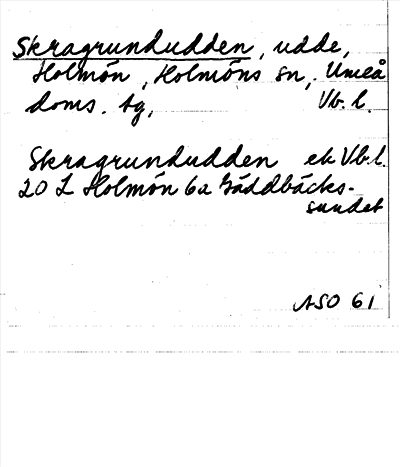 Skragrundudden, udde,
Holmön, Holmöns sn, Umeå
doms. tg, Vb. l.
Skragrundudden ek Vb. l.
20 L Holmön 6a Gäddbäcks-
sundet
ASO 61